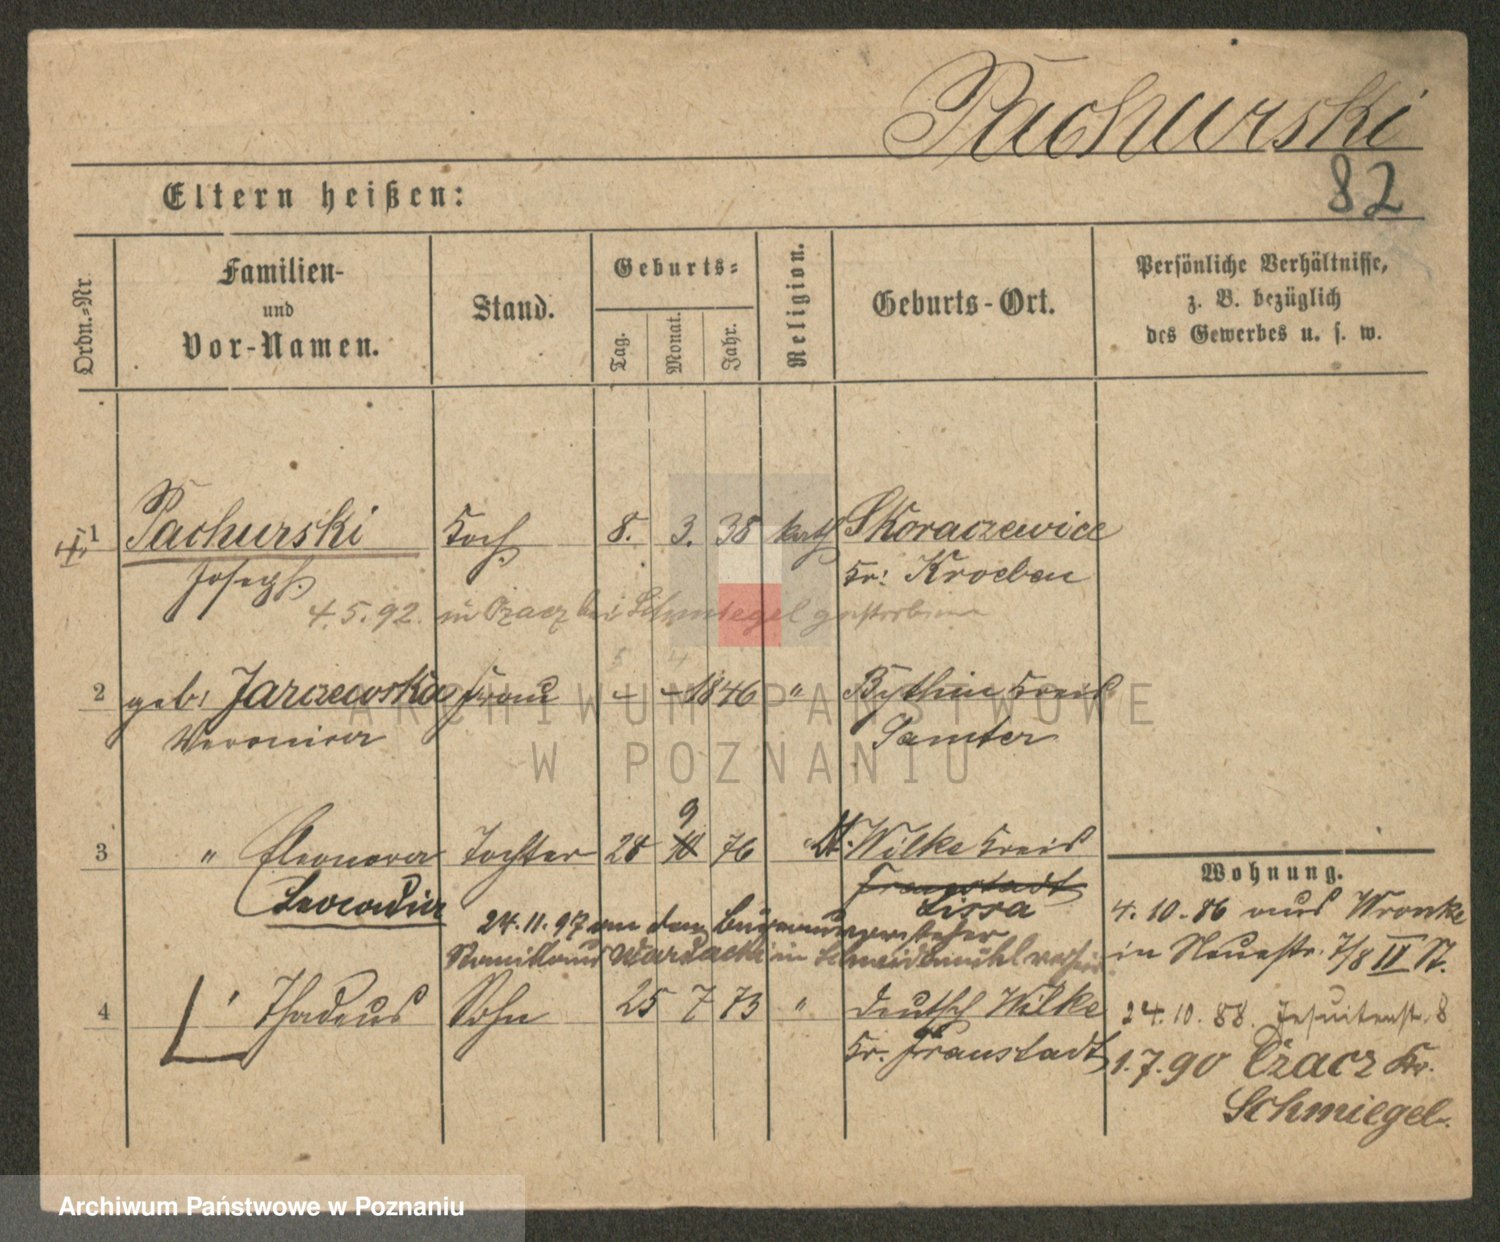 Pachurski
82
Eltern heißen:
Ordn.-Nr.
Familien-
und
Vor-Namen.
Stand.
Geburts-
Tag.
Monat.
Jahr.
Religion.
Geburts-Ort.
Persönliche Verhältnisse,
z. B. bezüglich
des Gewerbes u. s. w.
1 Pachurski Koch 8. 3. 38 kath Skoraczewice
Joseph Kr: Kroeben
4.5.92. in Czacz bei Schmiegel gestorben
5 4
2 geb: Jarczewska Frau - - 1846 " Bythin Kreis
Veronica Samter
9
3 " Eleonora Tochter 28 10 76 Dt. Wilke Kreis
Fraustadt
Leocadia Lissa
24.11.97 an den
Wardacki in Schneidemühl verheir
4 " Thadeus Sohn 25 7 73 " Deutsch Wilke
Kr. Fraustadt
Wohnung.
4.10.86 aus Wronke
in Neuestr. 7/8 II St.
24.10.88. Jesuitenstr. 8
1.7.90 Czacz Kr.
Schmiegel.
ARCHIWUM PAŃSTWOWE
W POZNANIU
Archiwum Państwowe w Poznaniu